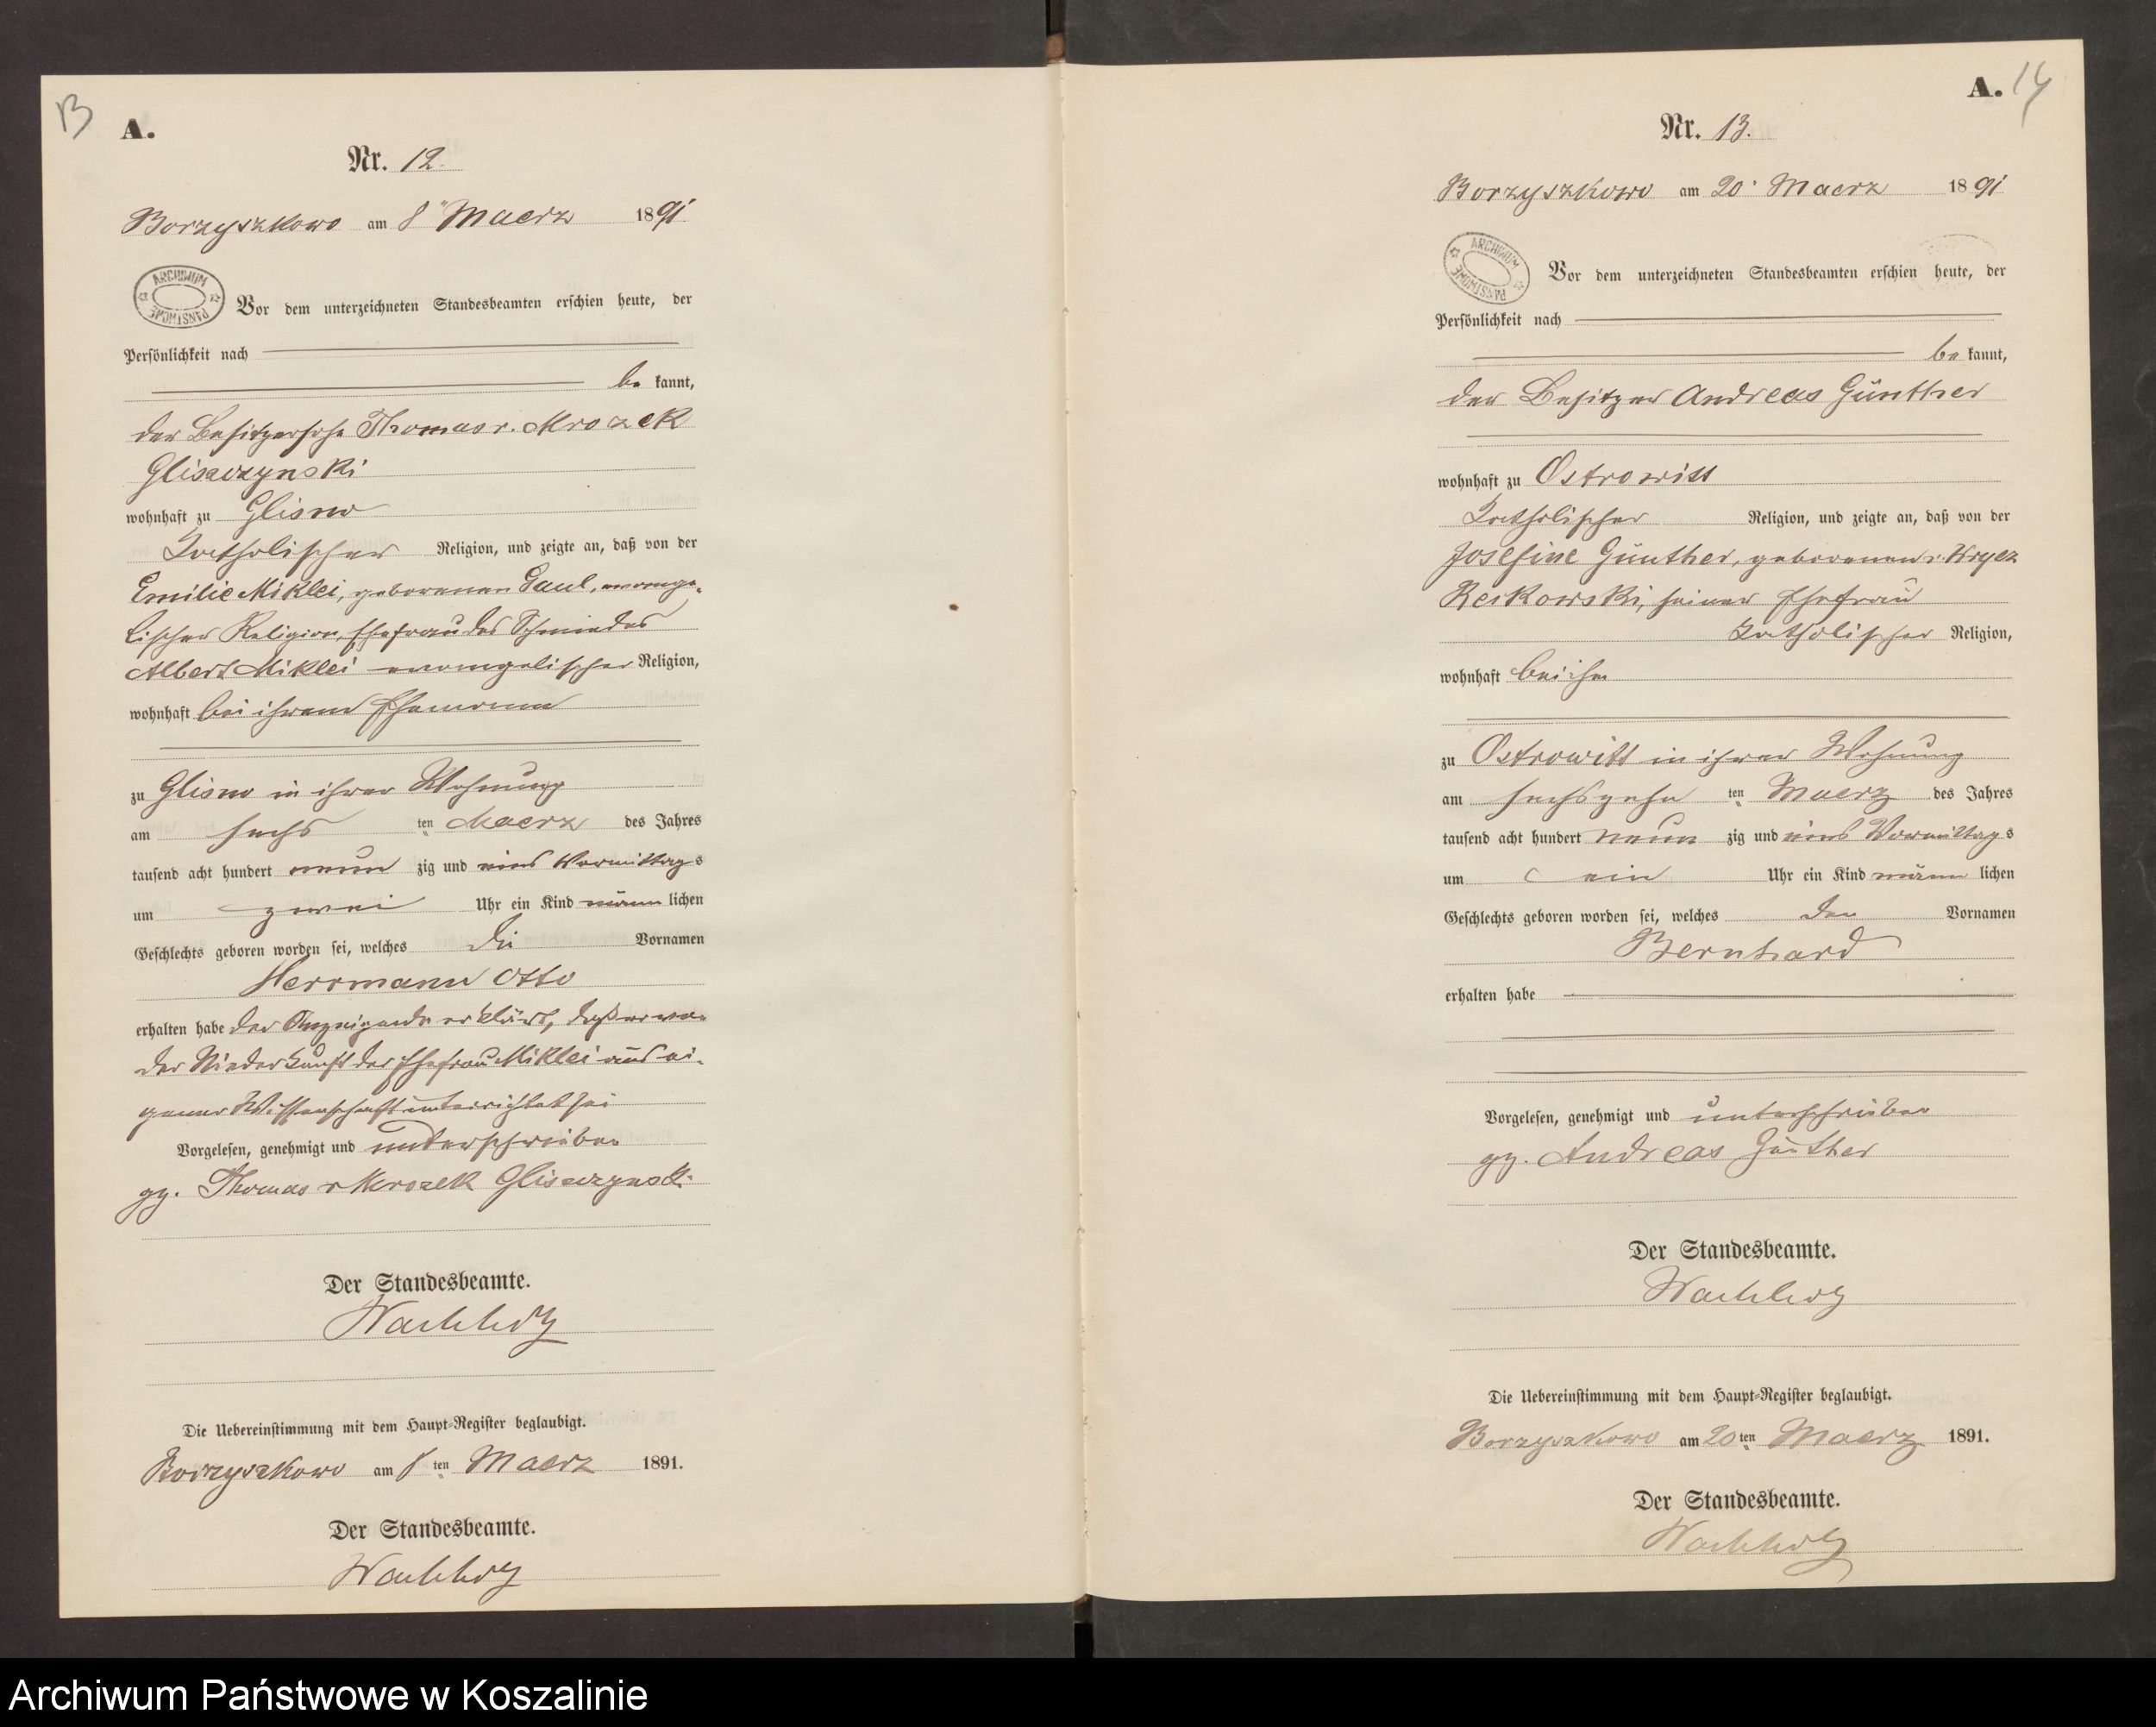 13
A.
Nr. 12.
Borzyszkowo am 8" Maerz 1891
ARCHIWUM PAŃSTWOWE
Vor dem unterzeichneten Standesbeamten erschien heute, der
Persönlichkeit nach
be kannt,
der Besitzersohn Thomas v. Mrozek
Glisczynski
wohnhaft zu Glisno
katholischer Religion, und zeigte an, daß von der
Emilie Miklei, geborenen Paul, evange-
lischer Religion, Ehefrau des Schmiedes
Albert Miklei evangelischer Religion,
wohnhaft bei ihrem Ehemann
zu Glisno in ihrer Wohnung
am sechs ten Maerz des Jahres
tausend acht hundert neun zig und eins Vormittags
um zwei Uhr ein Kind männ lichen
Geschlechts geboren worden sei, welches die Vornamen
Herrmann Otto
erhalten habe der Anzeigende erklärt, daß er von
der Niederkunft der Ehefrau Miklei aus ei-
gener Wissenschaft unterrichtet sei
Vorgelesen, genehmigt und unterschrieben
gz. Thomas v Mrozek Glisczynski
Der Standesbeamte.
Wachholz
Die Uebereinstimmung mit dem Haupt-Register beglaubigt.
Borzyszkowo am 8 ten Maerz 1891.
Der Standesbeamte.
Wachholz
A. 14
Nr. 13.
Borzyszkowo am 20. Maerz 1891
ARCHIWUM PAŃSTWOWE
Vor dem unterzeichneten Standesbeamten erschien heute, der
Persönlichkeit nach
be kannt,
der Besitzer Andreas Günther
wohnhaft zu Ostrowitt
katholischer Religion, und zeigte an, daß von der
Josefine Günther, geborenen v. Wrycz
Reikowski, seiner Ehefrau
katholischer Religion,
wohnhaft bei ihm
zu Ostrowitt in ihrer Wohnung
am sechszehn ten Maerz des Jahres
tausend acht hundert neun zig und eins Vormittags
um ein Uhr ein Kind männ lichen
Geschlechts geboren worden sei, welches den Vornamen
Bernhard
erhalten habe
Vorgelesen, genehmigt und unterschrieben
gz. Andreas Günther
Der Standesbeamte.
Wachholz
Die Uebereinstimmung mit dem Haupt-Register beglaubigt.
Borzyszkowo am 20 ten Maerz 1891.
Der Standesbeamte.
Wachholz
Archiwum Państwowe w Koszalinie